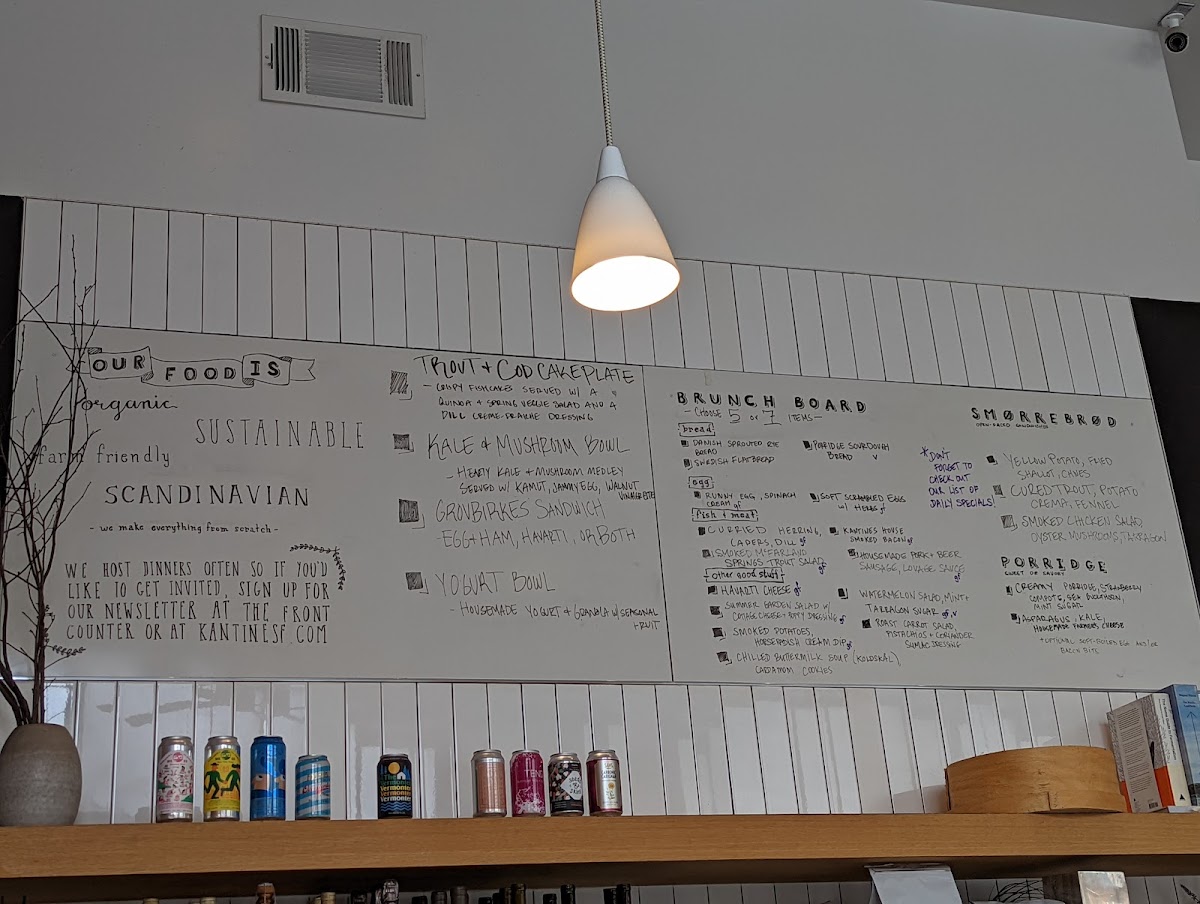 OUR FOOD IS
organic
SUSTAINABLE
farm friendly
SCANDINAVIAN
- we make everything from scratch -
WE HOST DINNERS OFTEN SO IF YOU'D
LIKE TO GET INVITED, SIGN UP FOR
OUR NEWSLETTER AT THE FRONT
COUNTER OR AT KANTINESF.COM
TROUT + COD CAKE PLATE
- CRISPY FISHCAKES SERVED W/ A
QUINOA + SPRING VEGGIE SALAD AND A
DILL CREME-FRAICHE DRESSING
KALE + MUSHROOM BOWL
- HEARTY KALE + MUSHROOM MEDLEY
SERVED W/ KAMUT, JAMMY EGG, WALNUT
VINAIGRETTE
GROVBIRKES SANDWICH
- EGG + HAM, HAVARTI, OR BOTH
YOGURT BOWL
- HOUSEMADE YOGURT + GRANOLA W/ SEASONAL
FRUIT
BRUNCH BOARD
- CHOOSE 5 OR 7 ITEMS -
bread
DANISH SPROUTED RYE
BREAD
SWEDISH FLATBREAD
PORRIDGE SOURDOUGH
BREAD v
egg
RUNNY EGG, SPINACH
CREAM gf
SOFT SCRAMBLED EGGS
w/ HERBS gf
fish + meat
CURRIED HERRING,
CAPERS, DILL gf
SMOKED McFARLAND
SPRINGS TROUT SALAD gf
KANTINES HOUSE
SMOKED BACON gf
HOUSEMADE PORK + BEER
SAUSAGE, LOVAGE SAUCE
gf
other good stuff
HAVARTI CHEESE gf
SUMMER GARDEN SALAD W/
COTTAGE CHEESE + POPPY DRESSING gf
SMOKED POTATOES,
HORSERADISH CREAM DIP gf
CHILLED BUTTERMILK SOUP (KOLDSKÅL)
CARDAMOM COOKIES
WATERMELON SALAD, MINT +
TARRAGON SUGAR gf, v
ROAST CARROT SALAD,
PISTACHIOS + CORIANDER
SUMAC DRESSING
*DON'T
FORGET TO
CHECK OUT
OUR LIST OF
DAILY SPECIALS!
SMØRREBRØD
OPEN-FACED SANDWICHES
YELLOW POTATO, FRIED
SHALLOT, CHIVES
CURED TROUT, POTATO
CREMA, FENNEL
SMOKED CHICKEN SALAD
OYSTER MUSHROOMS, TARRAGON
PORRIDGE
SWEET OR SAVORY
CREAMY PORRIDGE, STRAWBERRY
COMPOTE, SEA BUCKTHORN,
MINT SUGAR
ASPARAGUS, KALE,
HOUSEMADE FARMERS CHEESE
+ OPTIONAL SOFT-BOILED EGG AND/OR
BACON BITE
The
Vermonter
Vermonter
Vermonter